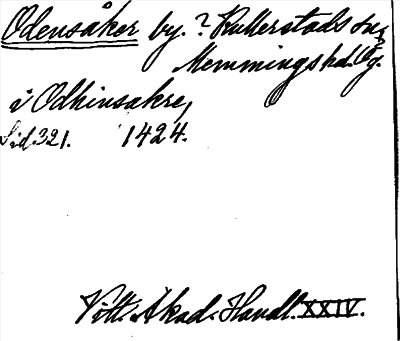 Odensåker by. ? Kullerstads sn,
Memmings hd. Ög.
i Odhinsakre,
Sid 321. 1424.
Vitt. Akad. Handl. XXIV.